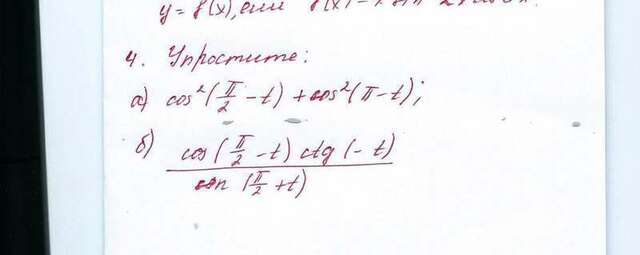 y = f(x), если
4. Упростите:
а) cos²(π/2 - t) + cos²(π - t);
б) cos(π/2 - t) ctg(- t)
sin(π/2 + t)